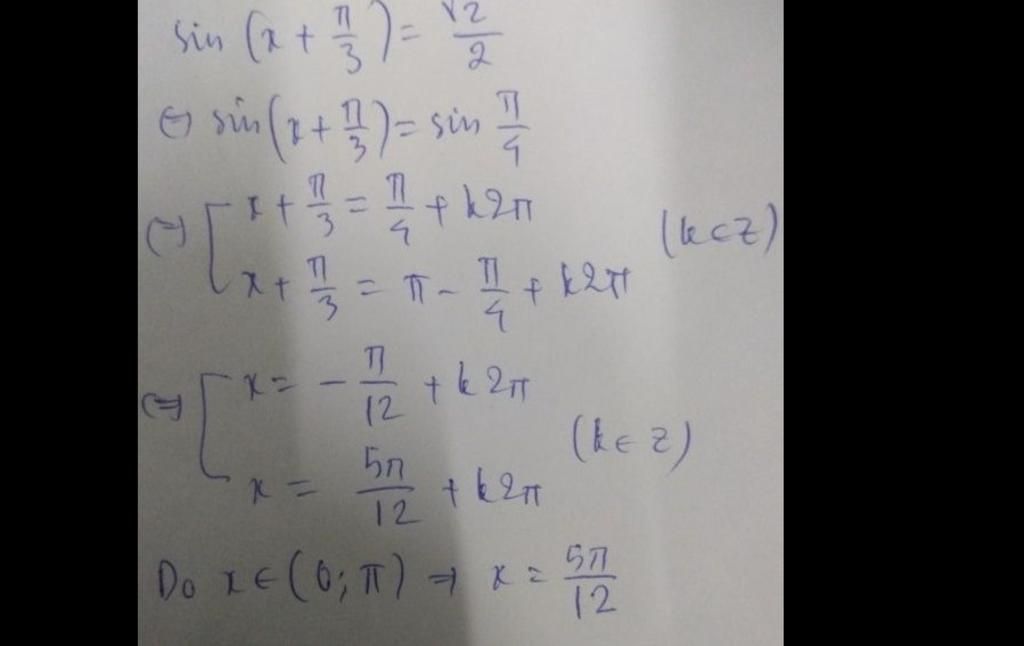 sin (x + π/3) = √2/2
⇔ sin(x + π/3) = sin π/4
⇔ [ x + π/3 = π/4 + k2π
x + π/3 = π - π/4 + k2π (k∈Z)
⇔ [ x = - π/12 + k2π
x = 5π/12 + k2π (k∈Z)
Do x∈(0;π) ⇒ x = 5π/12